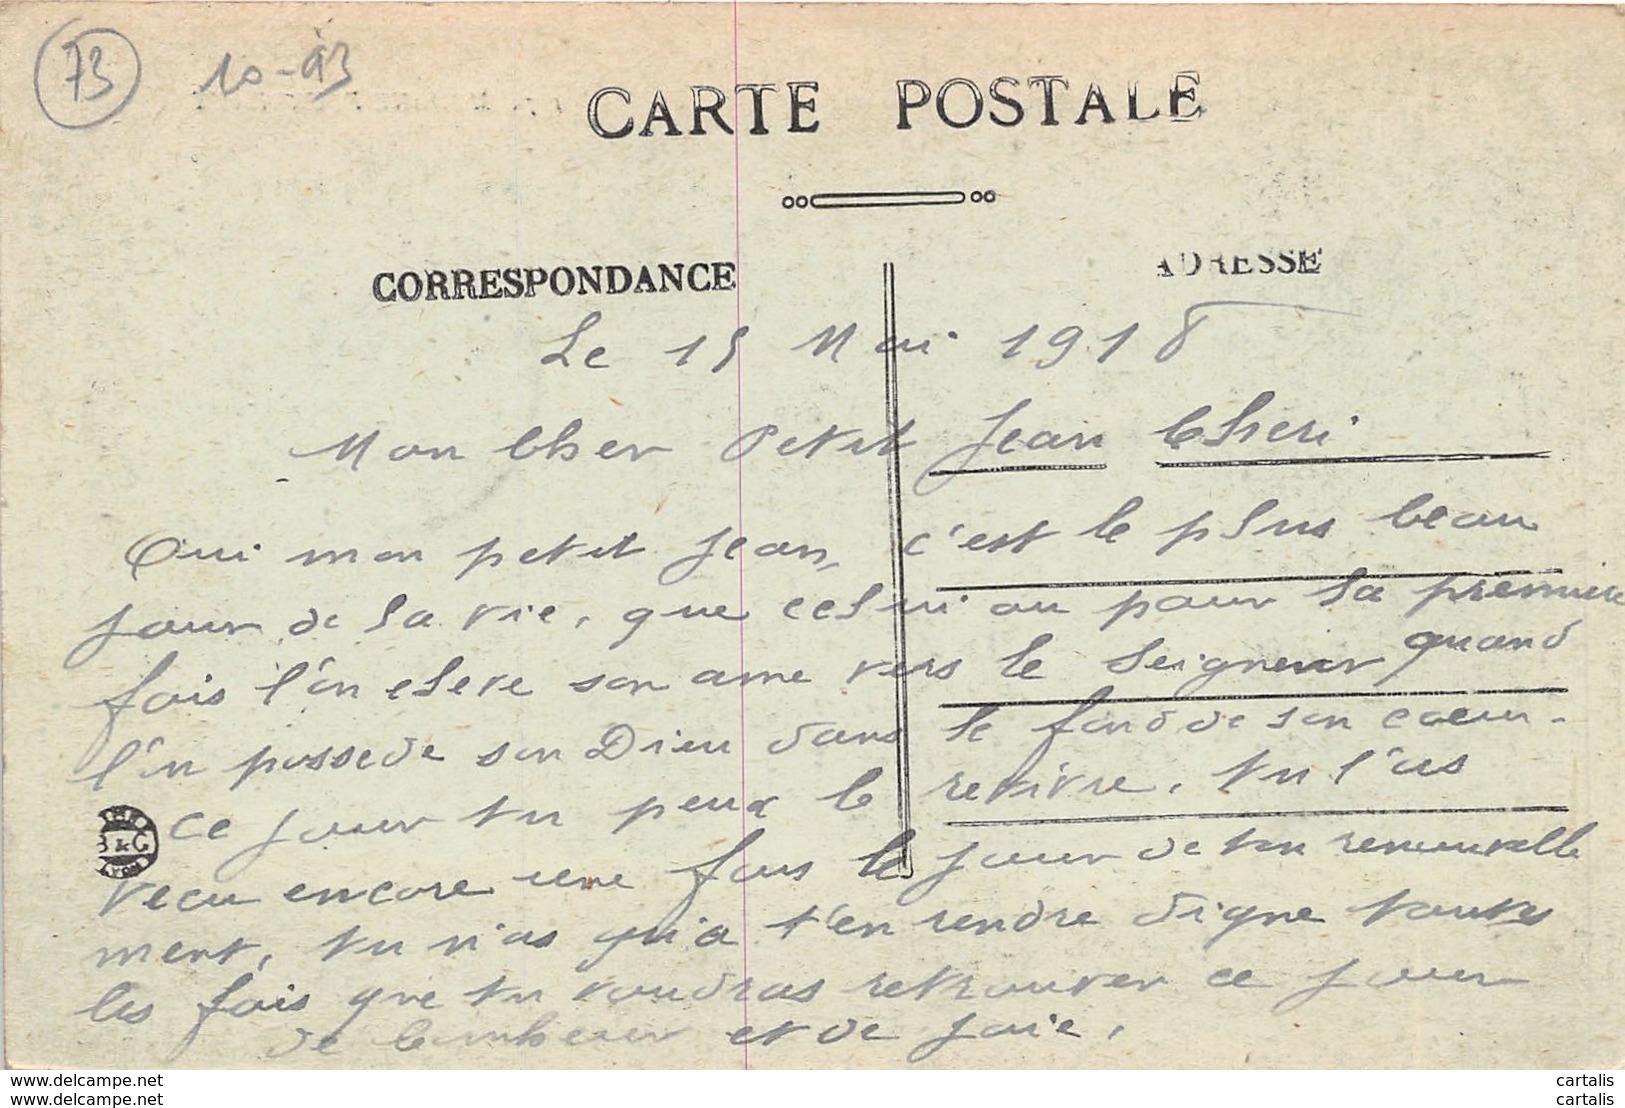 73
10-93
CARTE POSTALE
CORRESPONDANCE
ADRESSE
Le 15 Mai 1918
Mon Cher Petit Jean Cheri
Oui mon petit Jean, c'est le plus beau
jour de la vie, que celui ou pour la premiere
fois l'on eleve son ame vers le Seigneur quand
l'on possede son Dieu dans le fond de son coeur.
Ce jour tu peux le revivre, tu l'as
vecu encore une fois le jour de ton renouvelle
ment, tu n'as qu'a t'en rendre digne toutes
les fois que tu voudras retrouver ce jour
de bonheur et de joie.
B & G
LYON
www.delcampe.net
www.delcampe.com
cartalis
cartalis